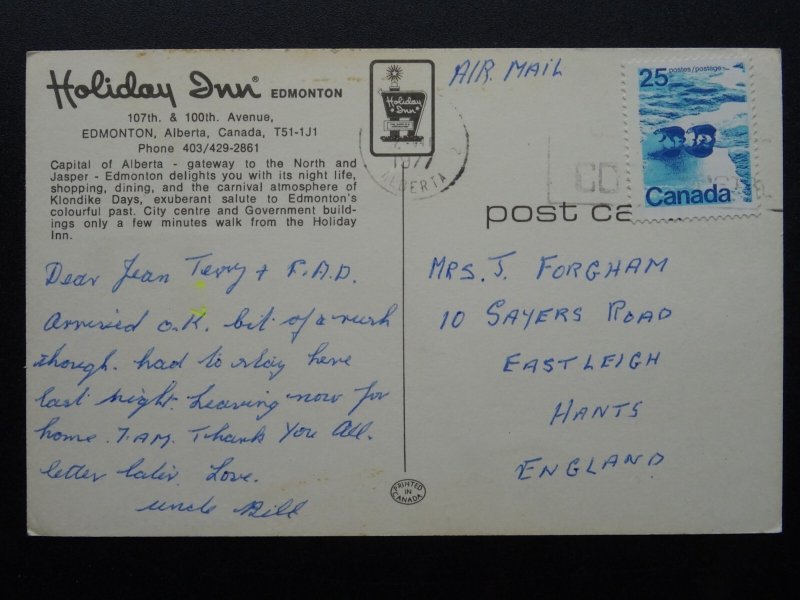 Holiday Inn® EDMONTON
107th. & 100th. Avenue,
EDMONTON, Alberta, Canada, T51-1J1
Phone 403/429-2861
Capital of Alberta - gateway to the North and
Jasper - Edmonton delights you with its night life,
shopping, dining, and the carnival atmosphere of
Klondike Days, exuberant salute to Edmonton's
colourful past. City centre and Government build-
ings only a few minutes walk from the Holiday
Inn.
Dear Jean Terry + F.A.D.
Arrived O.K. bit of a rush
though. had to stay here
last night. Leaving now for
home. 7.AM. Thank You All.
letter later. Love.
Uncle Bill
Holiday Inn
1977
ALBERTA
AIR MAIL
25 postes/postage
Canada
post ca
MRS. J. FORGHAM
10 SAYERS ROAD
EASTLEIGH
HANTS
ENGLAND
PRINTED IN CANADA